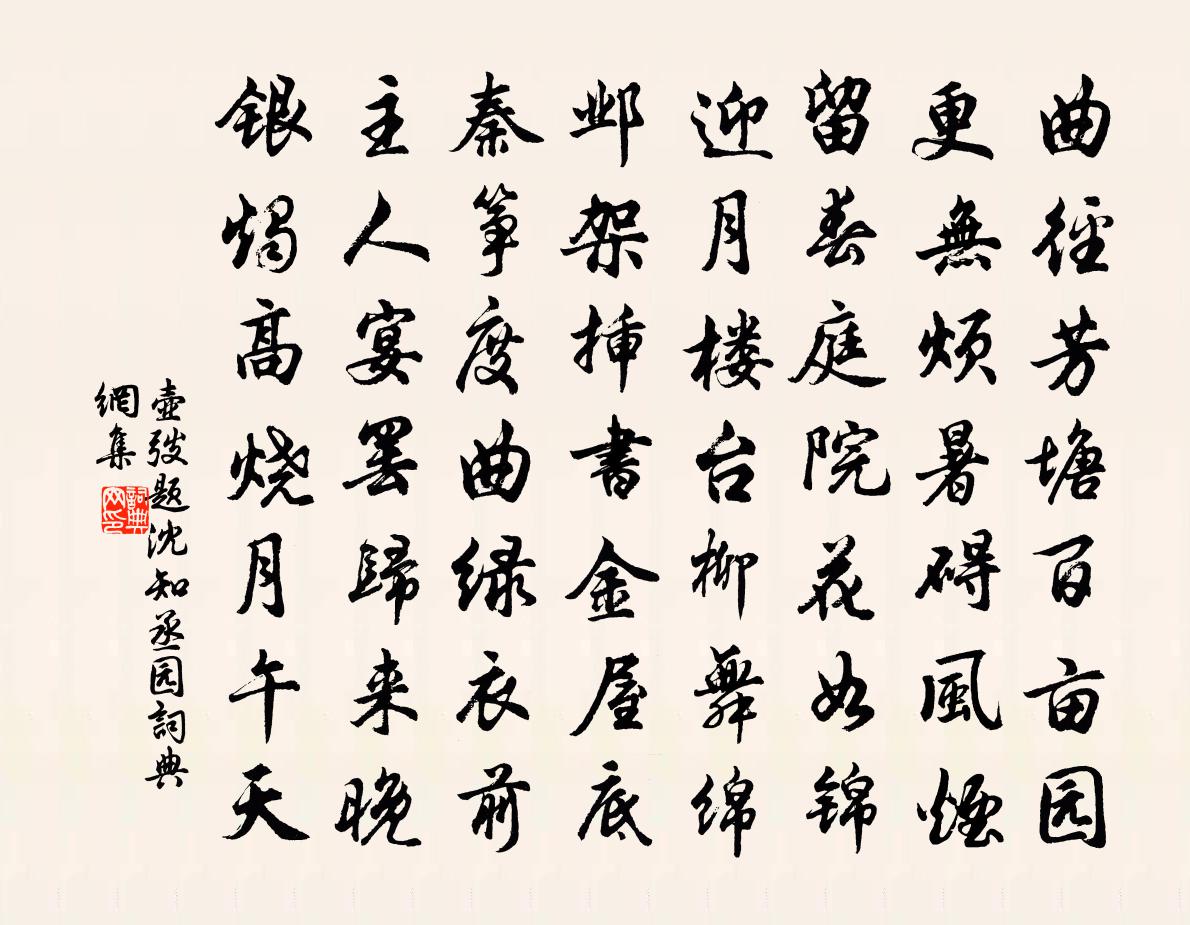 曲徑芳塘百亩园
更無烦暑碍風煙
留春庭院花如锦
迎月楼台柳舞绵
邺架插書金屋底
秦筝度曲绿衣前
主人宴罢歸来晚
银燭高烧月午天
壺弢题沈知丞园詞典
網集
詞典网印